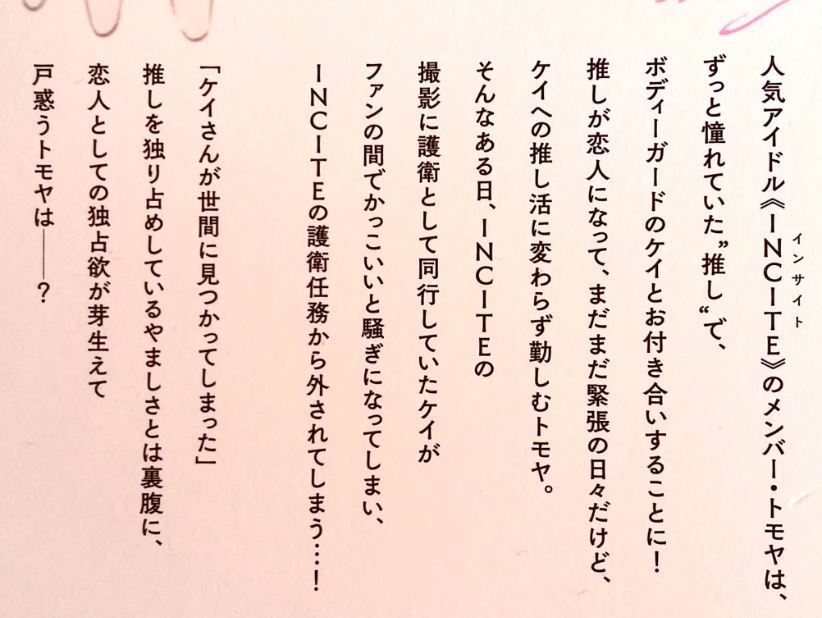 人気アイドル《INCITE》のメンバー・トモヤは、
インサイト
ずっと憧れていた”推し“で、
ボディーガードのケイとお付き合いすることに！
推しが恋人になって、まだまだ緊張の日々だけど、
ケイへの推し活に変わらず勤しむトモヤ。
そんなある日、INCITEの
撮影に護衛として同行していたケイが
ファンの間でかっこいいと騒ぎになってしまい、
INCITEの護衛任務から外されてしまう…！
「ケイさんが世間に見つかってしまった」
推しを独り占めしているやましさとは裏腹に、
恋人としての独占欲が芽生えて
戸惑うトモヤは――？